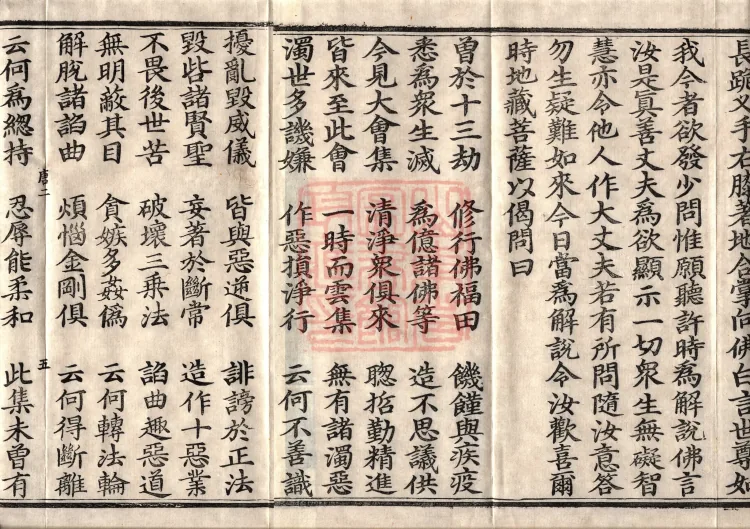 長跪叉手右膝著地合掌向佛白言世尊如
我今者欲發少問惟願聽許時爲解說佛言
汝是眞善丈夫爲欲顯示一切衆生無礙智
慧亦令他人作大丈夫若有所問隨汝意答
勿生疑難如來今日當爲解說令汝歡喜爾
時地藏菩薩以偈問曰
曾於十三劫 修行佛福田 饑饉與疾疫
悉爲衆生滅 爲億諸佛等 造不思議供
今見大會集 清淨衆俱來 聦哲勤精進
皆來至此會 一時而雲集 無有諸濁惡
濁世多譏嫌 作惡損淨行 云何不善識
擾亂毀威儀 皆與惡逆俱 誹謗於正法
毀呰諸賢聖 妄著於斷常 造作十惡業
不畏後世苦 破壞三乘法 諂曲趣惡道
無明蔽其目 貪嫉多姦僞 云何轉法輪
解脫諸諂曲 煩惱金剛俱 云何得斷離
唐二 五
云何爲緫持 忍辱能柔和 此集未曾有